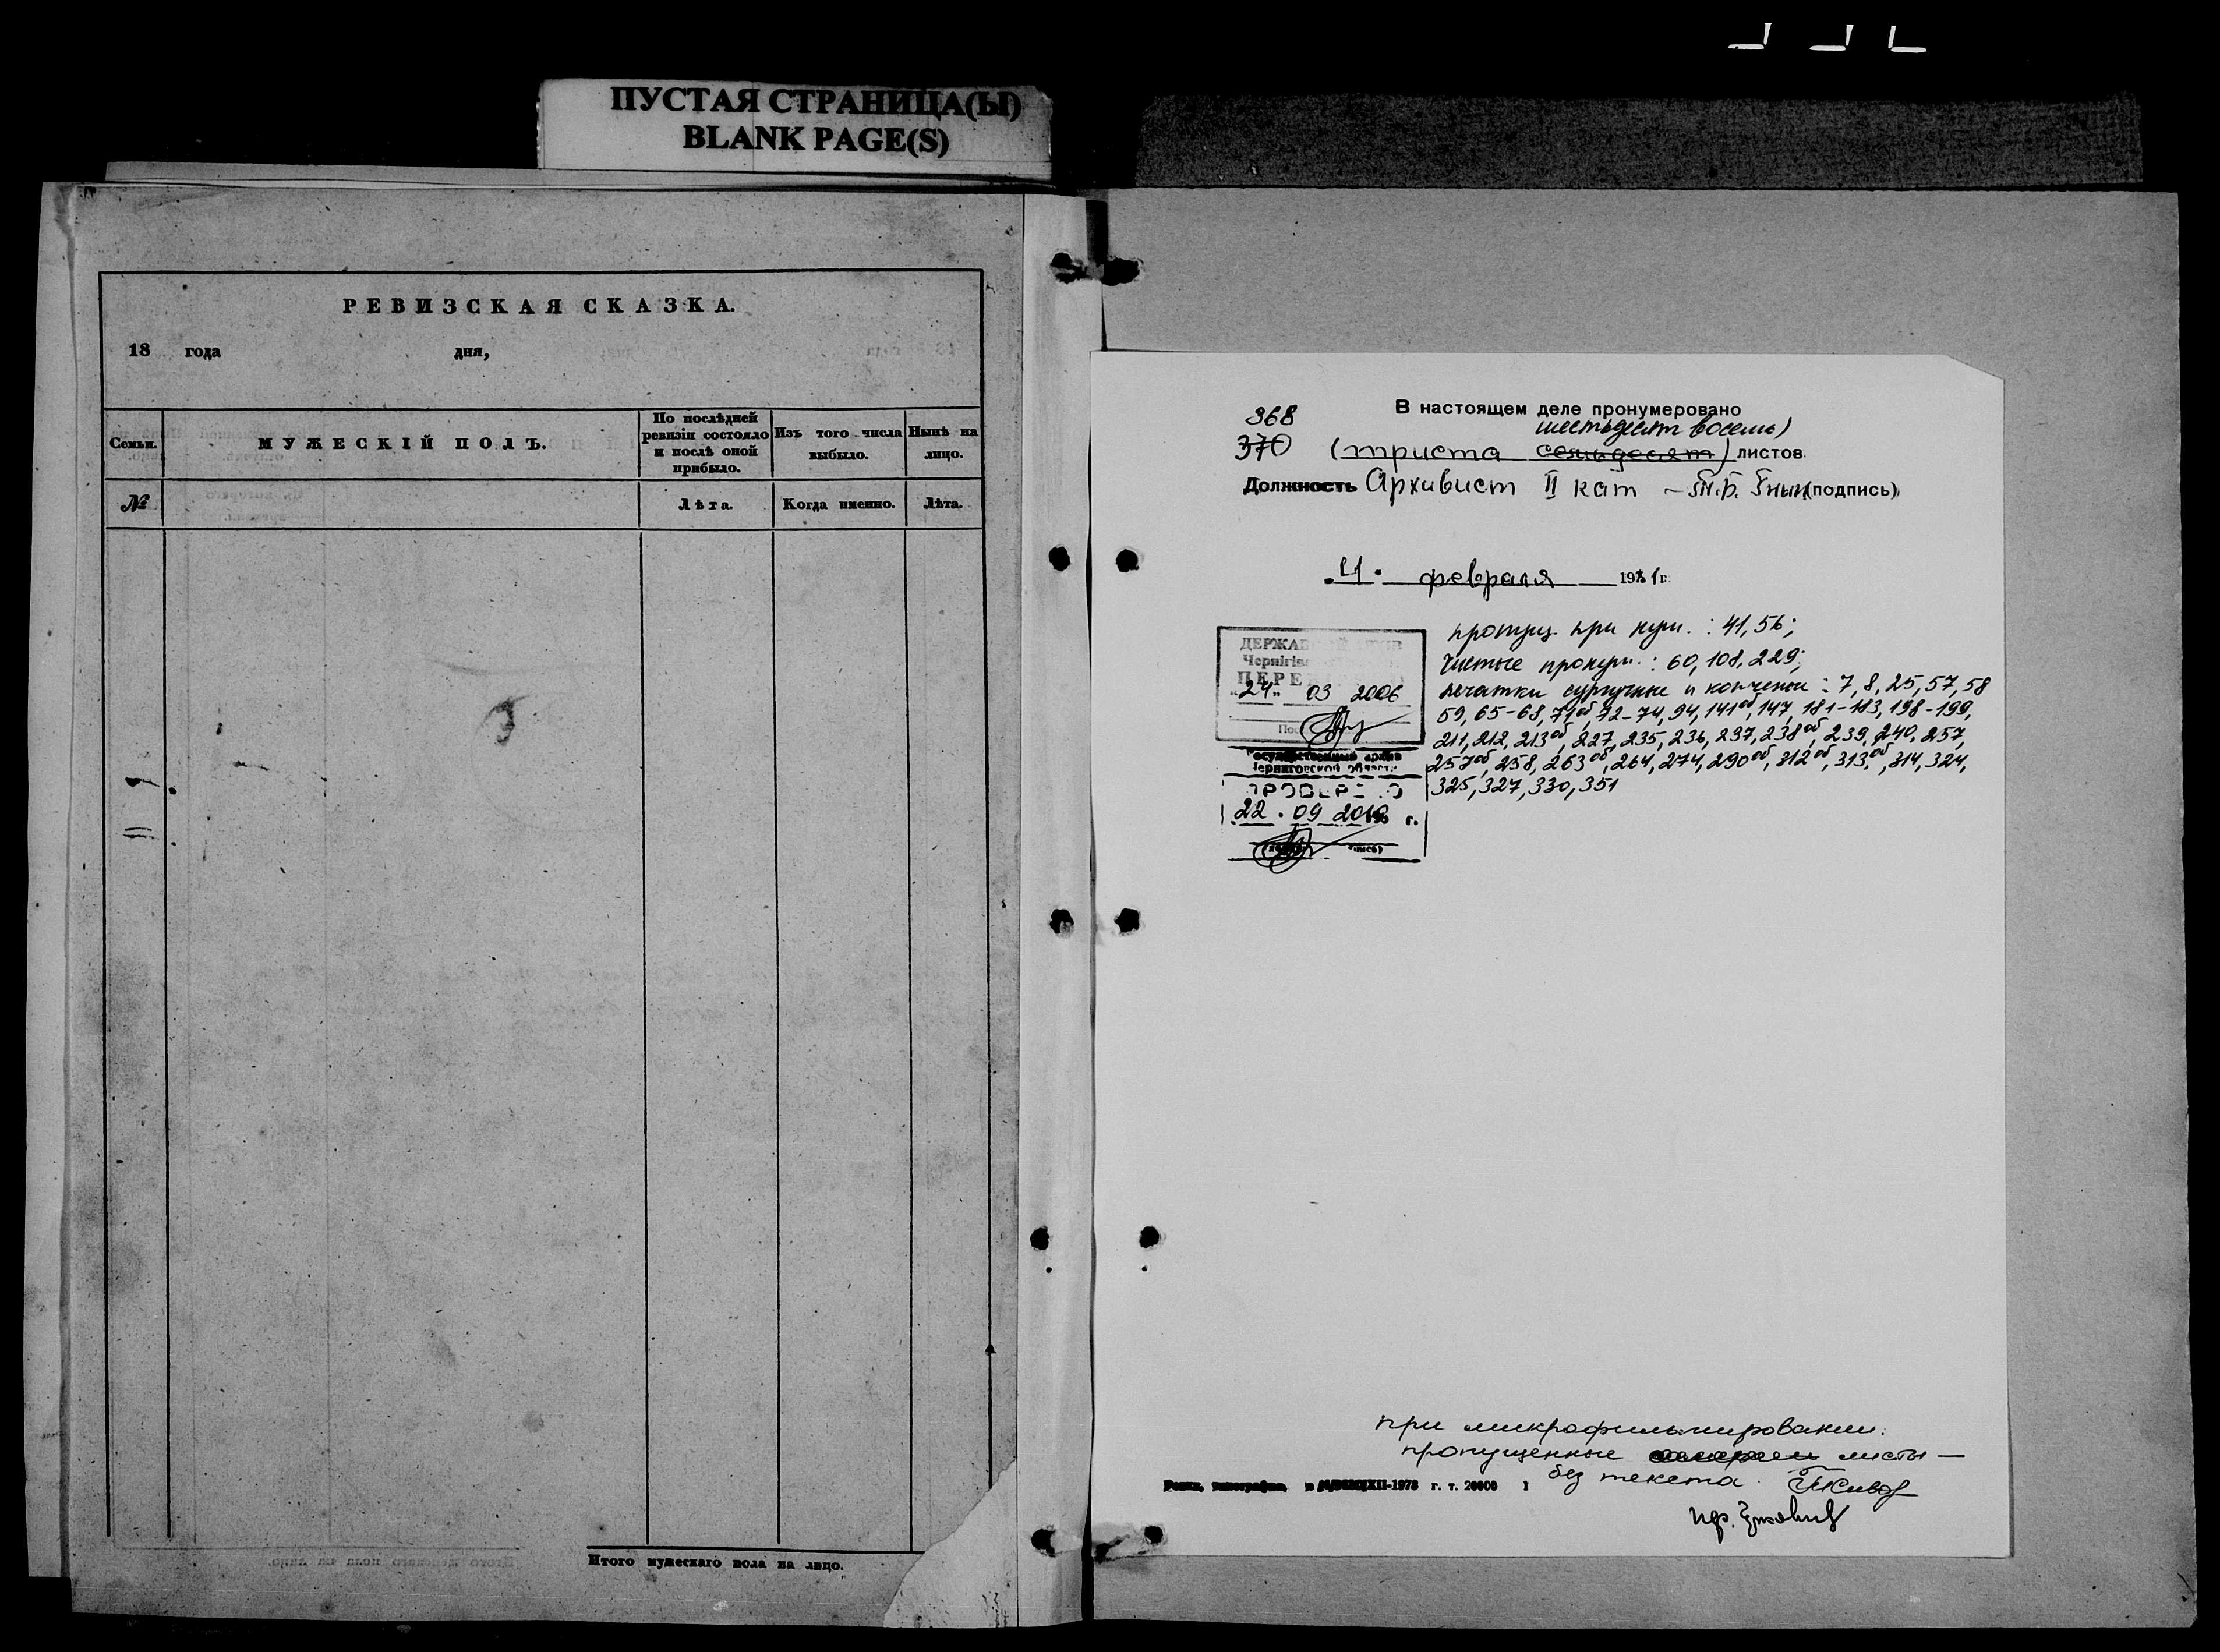 ПУСТАЯ СТРАНИЦА(Ы)
BLANK PAGE(S)
РЕВИЗСКАЯ СКАЗКА.
18 года дня,
Семьи.
МУЖЕСКІЙ ПОЛЪ.
По послѣдней ревизіи состояло и послѣ оной прибыло.
Изъ того числа выбыло.
Нынѣ на лицо.
№
Лѣта.
Когда именно.
Лѣта.
Итого мужескаго пола на лицо.
В настоящем деле пронумеровано
368 шестьдесят восемь)
370 (триста семьдесят) листов
Должность Архивист II кат (подпись)
21. февраля 1981 г.
ДЕРЖАВ
Чернігів
ПЕРЕ
"24" 03 2006
Государственный архив
Черниговской области
ПРОВЕРЕНО
22. 09 2010 г.
пропущ. при нум. : 41, 56;
чистые пронум. : 60, 108, 229;
печатки сургучные и копченые : 7, 8, 25, 57, 58
59, 65-68, 71об, 72-74, 94, 141об, 147, 181-183, 198-199,
211, 212, 213об, 227, 235, 236, 237, 238об, 239, 240, 257,
257об, 258, 263об, 264, 274, 290об, 312об, 313об, 314, 324,
325, 327, 330, 351
при микрофильмировании
пропущенные листы —
без текста.
XII-1978 г. т. 20000 1